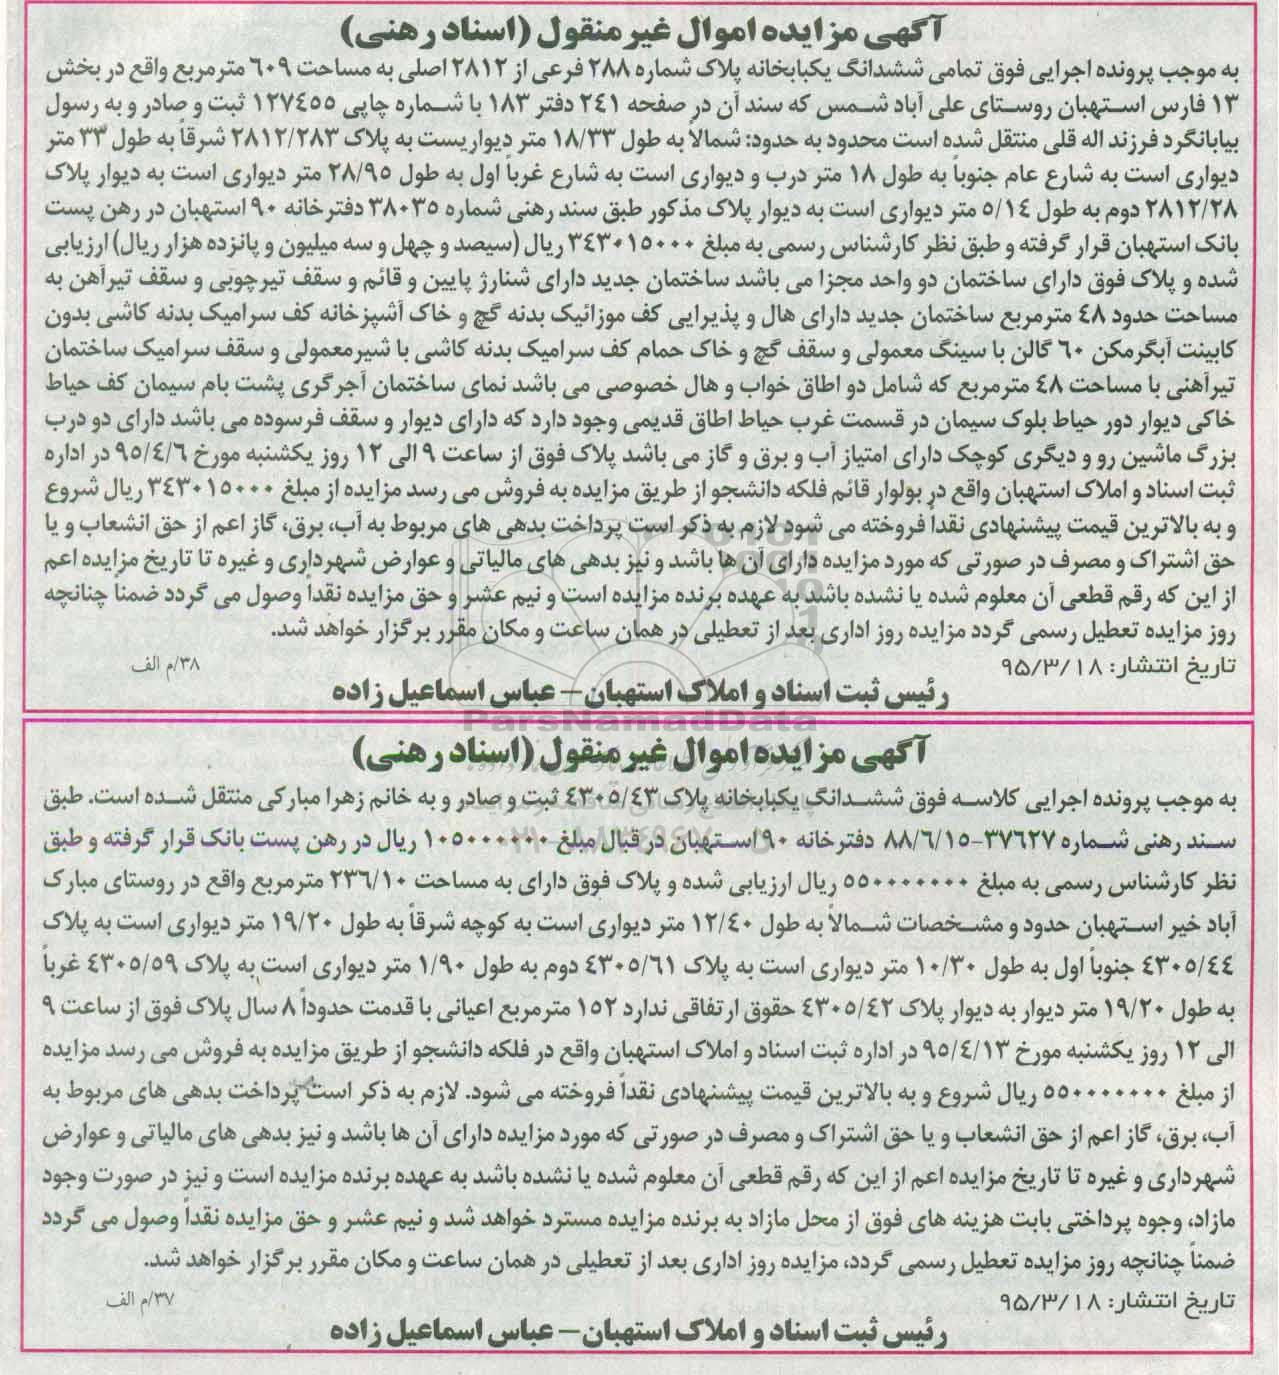 آگهی مزایده اموال غیر منقول (اسناد رهنی)
به موجب پرونده اجرایی فوق تمامی ششدانگ یکبابخانه پلاک شماره ۲۸۸ فرعی از ۲۸۱۲ اصلی به مساحت ۶۰۹ مترمربع واقع در بخش
۱۳ فارس استهبان روستای علی آباد شمس که سند آن در صفحه ۲۴۱ دفتر ۱۸۳ با شماره چاپی ۱۲۷۴۵۵ ثبت و صادر و به رسول
بیابانگرد فرزند اله قلی منتقل شده است محدود به حدود: شمالاً به طول ۱۸/۳۳ متر دیواریست به پلاک ۲۸۱۲/۲۸۳ شرقاً به طول ۳۳ متر
دیواری است به شارع عام جنوباً به طول ۱۸ متر درب و دیواری است به شارع غرباً اول به طول ۲۸/۹۵ متر دیواری است به دیوار پلاک
۲۸۱۲/۲۸ دوم به طول ۵/۱۴ متر دیواری است به دیوار پلاک مذکور طبق سند رهنی شماره ۳۸۰۳۵ دفترخانه ۹۰ استهبان در رهن پست
بانک استهبان قرار گرفته و طبق نظر کارشناس رسمی به مبلغ ۳۴۳۰۱۵۰۰۰ ریال (سیصد و چهل و سه میلیون و پانزده هزار ریال) ارزیابی
شده و پلاک فوق دارای ساختمان دو واحد مجزا می باشد ساختمان جدید دارای شناژ پایین و قائم و سقف تیرچوبی و سقف تیرآهن به
مساحت حدود ۴۸ مترمربع ساختمان جدید دارای هال و پذیرایی کف موزائیک بدنه گچ و خاک آشپزخانه کف سرامیک بدنه کاشی بدون
کابینت آبگرمکن ۶۰ گالن با سینگ معمولی و سقف گچ و خاک حمام کف سرامیک بدنه کاشی با شیرمعمولی و سقف سرامیک ساختمان
تیرآهنی با مساحت ۴۸ مترمربع که شامل دو اطاق خواب و هال خصوصی می باشد نمای ساختمان آجرگری پشت بام سیمان کف حیاط
خاکی دیوار دور حیاط بلوک سیمان در قسمت غرب حیاط اطاق قدیمی وجود دارد که دارای دیوار و سقف فرسوده می باشد دارای دو درب
بزرگ ماشین رو و دیگری کوچک دارای امتیاز آب و برق و گاز می باشد پلاک فوق از ساعت ۹ الی ۱۲ روز یکشنبه مورخ ۹۵/۴/۶ در اداره
ثبت اسناد و املاک استهبان واقع در بولوار قائم فلکه دانشجو از طریق مزایده به فروش می رسد مزایده از مبلغ ۳۴۳۰۱۵۰۰۰ ریال شروع
و به بالاترین قیمت پیشنهادی نقداً فروخته می شود لازم به ذکر است پرداخت بدهی های مربوط به آب، برق، گاز اعم از حق انشعاب و یا
حق اشتراک و مصرف در صورتی که مورد مزایده دارای آن ها باشد و نیز بدهی های مالیاتی و عوارض شهرداری و غیره تا تاریخ مزایده اعم
از این که رقم قطعی آن معلوم شده یا نشده باشد به عهده برنده مزایده است و نیم عشر و حق مزایده نقداً وصول می گردد ضمناً چنانچه
روز مزایده تعطیل رسمی گردد مزایده روز اداری بعد از تعطیلی در همان ساعت و مکان مقرر برگزار خواهد شد.
تاریخ انتشار: ۹۵/۳/۱۸
۳۸/م الف
رئیس ثبت اسناد و املاک استهبان – عباس اسماعیل زاده
ParsNamadData
آگهی مزایده اموال غیر منقول (اسناد رهنی)
به موجب پرونده اجرایی کلاسه فوق ششدانگ یکبابخانه پلاک ۴۳۰۵/۴۳ ثبت و صادر و به خانم زهرا مبارکی منتقل شده است. طبق
سند رهنی شماره ۳۷۶۲۷-۸۸/۶/۱۵ دفترخانه ۹۰ استهبان در قبال مبلغ ۱۰۵۰۰۰۰۰۰ ریال در رهن پست بانک قرار گرفته و طبق
نظر کارشناس رسمی به مبلغ ۵۵۰۰۰۰۰۰۰ ریال ارزیابی شده و پلاک فوق دارای به مساحت ۲۳۶/۱۰ مترمربع واقع در روستای مبارک
آباد خیر استهبان حدود و مشخصات شمالاً به طول ۱۲/۴۰ متر دیواری است به کوچه شرقاً به طول ۱۹/۲۰ متر دیواری است به پلاک
۴۳۰۵/۴۴ جنوباً اول به طول ۱۰/۳۰ متر دیواری است به پلاک ۴۳۰۵/۶۱ دوم به طول ۱/۹۰ متر دیواری است به پلاک ۴۳۰۵/۵۹ غرباً
به طول ۱۹/۲۰ متر دیوار به دیوار پلاک ۴۳۰۵/۴۲ حقوق ارتفاقی ندارد ۱۵۲ مترمربع اعیانی با قدمت حدوداً ۸ سال پلاک فوق از ساعت ۹
الی ۱۲ روز یکشنبه مورخ ۹۵/۴/۱۳ در اداره ثبت اسناد و املاک استهبان واقع در فلکه دانشجو از طریق مزایده به فروش می رسد مزایده
از مبلغ ۵۵۰۰۰۰۰۰۰ ریال شروع و به بالاترین قیمت پیشنهادی نقداً فروخته می شود. لازم به ذکر است پرداخت بدهی های مربوط به
آب، برق، گاز اعم از حق انشعاب و یا حق اشتراک و مصرف در صورتی که مورد مزایده دارای آن ها باشد و نیز بدهی های مالیاتی و عوارض
شهرداری و غیره تا تاریخ مزایده اعم از این که رقم قطعی آن معلوم شده یا نشده باشد به عهده برنده مزایده است و نیز در صورت وجود
مازاد، وجوه پرداختی بابت هزینه های فوق از محل مازاد به برنده مزایده مسترد خواهد شد و نیم عشر و حق مزایده نقداً وصول می گردد
ضمناً چنانچه روز مزایده تعطیل رسمی گردد، مزایده روز اداری بعد از تعطیلی در همان ساعت و مکان مقرر برگزار خواهد شد.
تاریخ انتشار: ۹۵/۳/۱۸
۳۷/م الف
رئیس ثبت اسناد و املاک استهبان – عباس اسماعیل زاده